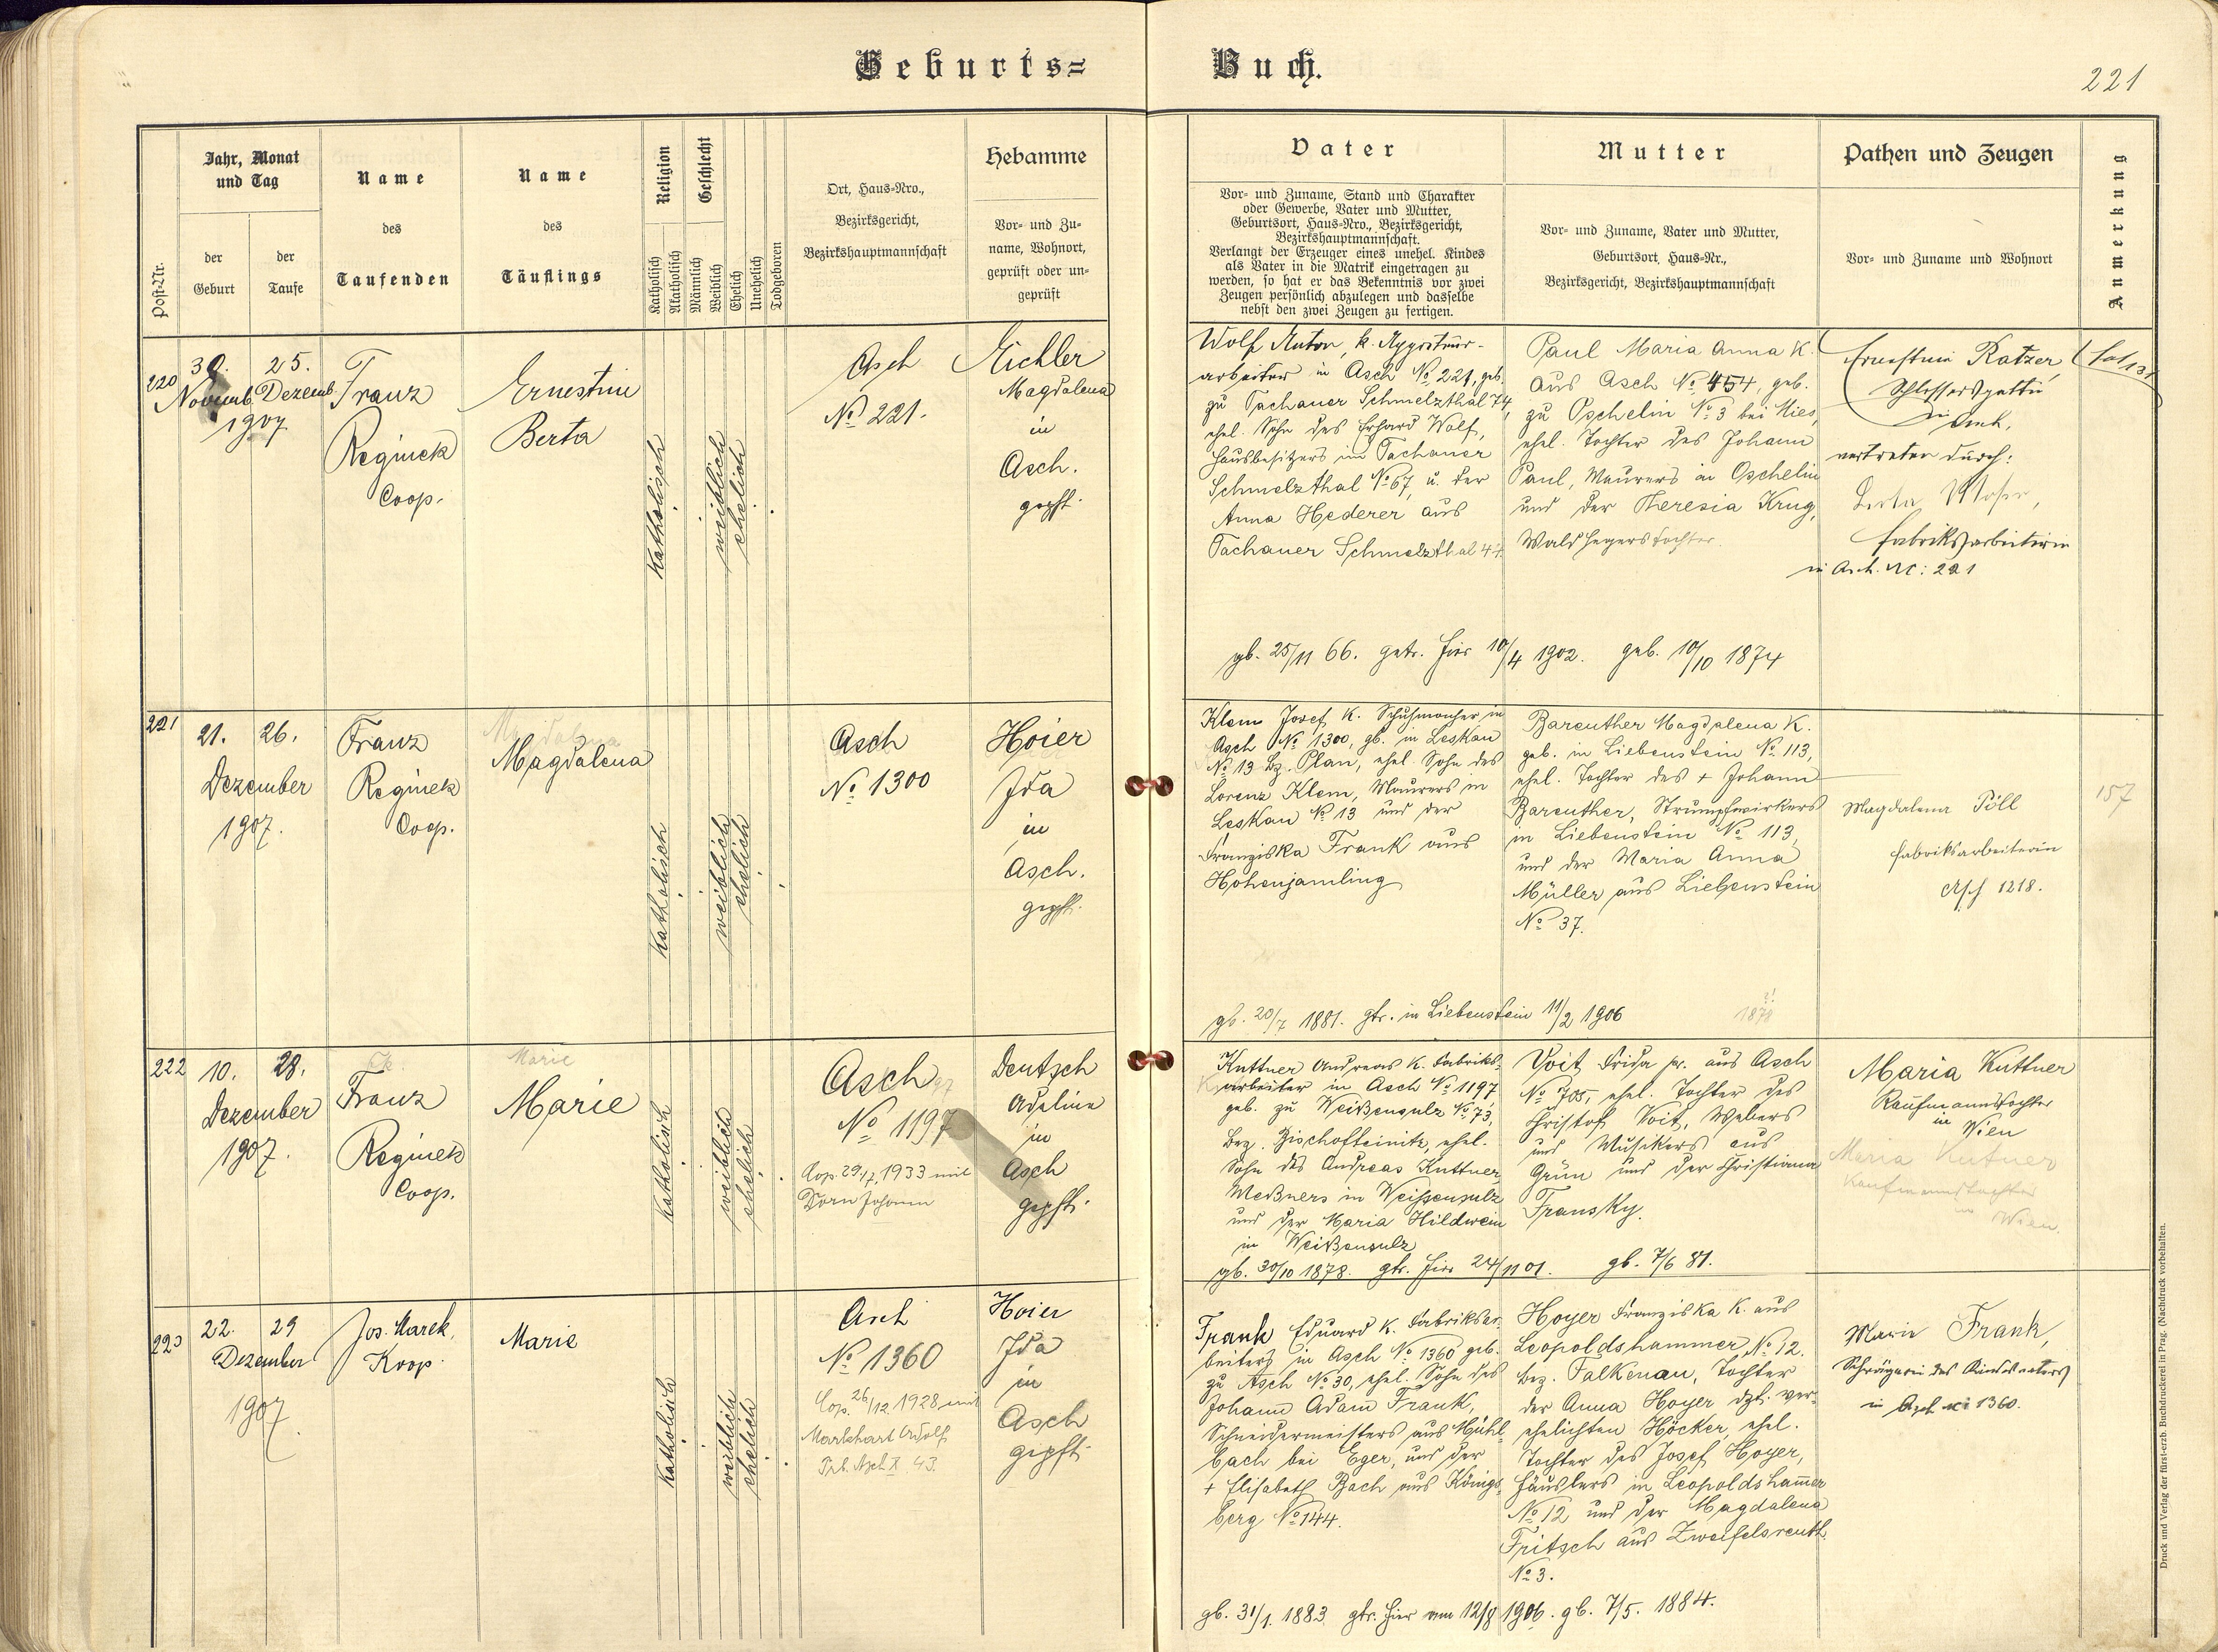 Geburts=
Buch.
221
Post-Nr.
Jahr, Monat
und Tag
der
Geburt
der
Taufe
Name
des
Taufenden
Name
des
Täuflings
Religion
Katholisch
Akatholisch
Geschlecht
Männlich
Weiblich
Ehelich
Unehelich
Todgeboren
Ort, Haus-Nro.,
Bezirksgericht,
Bezirkshauptmannschaft
Hebamme
Vor- und Zu-
name, Wohnort,
geprüft oder un-
geprüft
Vater
Vor- und Zuname, Stand und Charakter
oder Gewerbe, Vater und Mutter,
Geburtsort, Haus-Nro., Bezirksgericht,
Bezirkshauptmannschaft.
Verlangt der Erzeuger eines unehel. Kindes
als Vater in die Matrik eingetragen zu
werden, so hat er das Bekenntnis vor zwei
Zeugen persönlich abzulegen und dasselbe
nebst den zwei Zeugen zu fertigen.
Mutter
Vor- und Zuname, Vater und Mutter,
Geburtsort, Haus-Nr.,
Bezirksgericht, Bezirkshauptmannschaft
Pathen und Zeugen
Vor- und Zuname und Wohnort
Anmerkung
220
30.
Novemb.
25.
Dezemb
1907
Franz
Reginek
Coop.
Ernestine
Berta
Katholisch
weiblich
ehelich
Asch
No 221.
Eichler
Magdalena
in
Asch.
gepft.
Wolf Anton, k. Appretur-
arbeiter in Asch No 221, geb.
zu Tachauer Schmelzthal 74,
ehel. Sohn des Erhard Wolf,
Hausbesitzers im Tachauer
Schmelzthal No 67, u. der
Anna Hederer aus
Tachauer Schmelzthal 44
Paul Maria Anna k.
aus Asch No 454, geb.
zu Oschelin No 3 bei Mies,
ehel. Tochter des Johann
Paul, Maurers in Oschelin
und der Theresia Krug,
Waldhegerstochter.
Ernestine Ratzer,
Schlossersgattin
in
vertreten durch:
Fabriksarbeiterin
in Asch. Nc: 221
gb. 25/11 66. getr. hier 10/4 1902. geb. 10/10 1874
221
21. 26.
Dezember
1907.
Franz
Reginek
Coop.
Magdalena
Magdalena
Katholisch
weiblich
ehelich
Asch
No 1300
Hoier
Ida
in
Asch.
gepft.
Klem Josef k. Schuhmacher in
Asch No 1300, gb. in Leskau
No 13 Bz. Plan, ehel. Sohn des
Lorenz Klem, Maurers in
Leskau No 13 und der
Franziska Frank aus
Hohenjamling
Bareuther Magdalena k.
geb. in Liebenstein No 113,
ehel. Tochter des + Johann
Bareuther, Strumpfwirkers
in Liebenstein No 113,
und der Maria Anna
Müller aus Liebenstein
No 37.
Magdalena Pöll
Fabriksarbeiterin
Asch 1218.
157
gb. 20/7 1881. gtr. in Liebenstein 11/2 1906
1878
222
10. 28.
Dezember
1907.
Franz
Reginek
Coop.
Marie
Marie
Katholisch
weiblich
ehelich
Asch
No 1197
Cop. 29/7, 1933 mit
Dorn Johann
Deutsch
Adeline
in
Asch
gepft.
Kuttner Andreas k. Fabriks-
arbeiter in Asch No 1197,
geb. zu Weißensulz No 73,
Bez. Bischofteinitz, ehel.
Sohn des Andreas Kuttner,
Meßners in Weissensulz
und der Maria Hildwein
in Weißensulz
Voit Frida pr. aus Asch
No 705, ehel. Tochter des
Christof Voit, Webers
und Musikers aus
Grün und der Christiana
Fransky.
Maria Kuttner
Kaufmannstochter
in Wien
Maria Kutner
Kaufmannstochter
in Wien
gb. 30/10 1878. gtr. hier 24/11 01. gb. 7/6 81.
223
22. 29
Dezember
1907
Jos. Marek,
Koop.
Marie
Katholisch
weiblich
ehelich
Asch
No 1360
Cop. 26/12. 1928 mit
Markhart Adolf
Trb. Asch X 43.
Hoier
Ida
in
Asch
gepft.
Frank Eduard k. Fabriksar-
beiters in Asch No 1360 geb.
zu Asch No 30, ehel. Sohn des
Johann Adam Frank,
Schneidermeisters aus Mühl-
bach bei Eger, und der
+ Elisabeth Bach aus Königs-
berg No 144.
Hoyer Franziska k. aus
Leopoldshammer, No 12.
Bez. Falkenau, Tochter
der Anna Hoyer dzt. ver-
ehelichten Höcker, ehel.
Tochter des Josef Hoyer,
Häuslers in Leopoldshammer
No 12 und der Magdalena
Fritsch aus Zweifelsreuth
No 3.
Marie Frank,
Schwägerin des Kindesvaters
in Asch Nc 1360.
gb. 31/1. 1883 gtr. hier am 12/8 1906. gb. 7/5. 1884.
Druck und Verlag der fürst-erzb. Buchdruckerei in Prag. (Nachdruck vorbehalten.